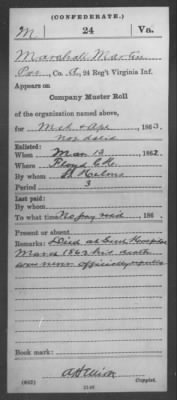 (CONFEDERATE.)
M 24 Va.
Marshall Martin
Co. A, 24 Reg't Virginia Inf.
Appears on
Company Muster Roll
of the organization named above,
for Mch & Apr, 1863
not dated
Enlisted:
When Mar 13, 1862
Where Floyd C.H.
By whom
Period 3
Last paid:
By whom
To what time No pay recd, 186
Present or absent
Remarks: Died at
March 1862 his death
was never officially reported
Book mark:
(642)
Copyist.